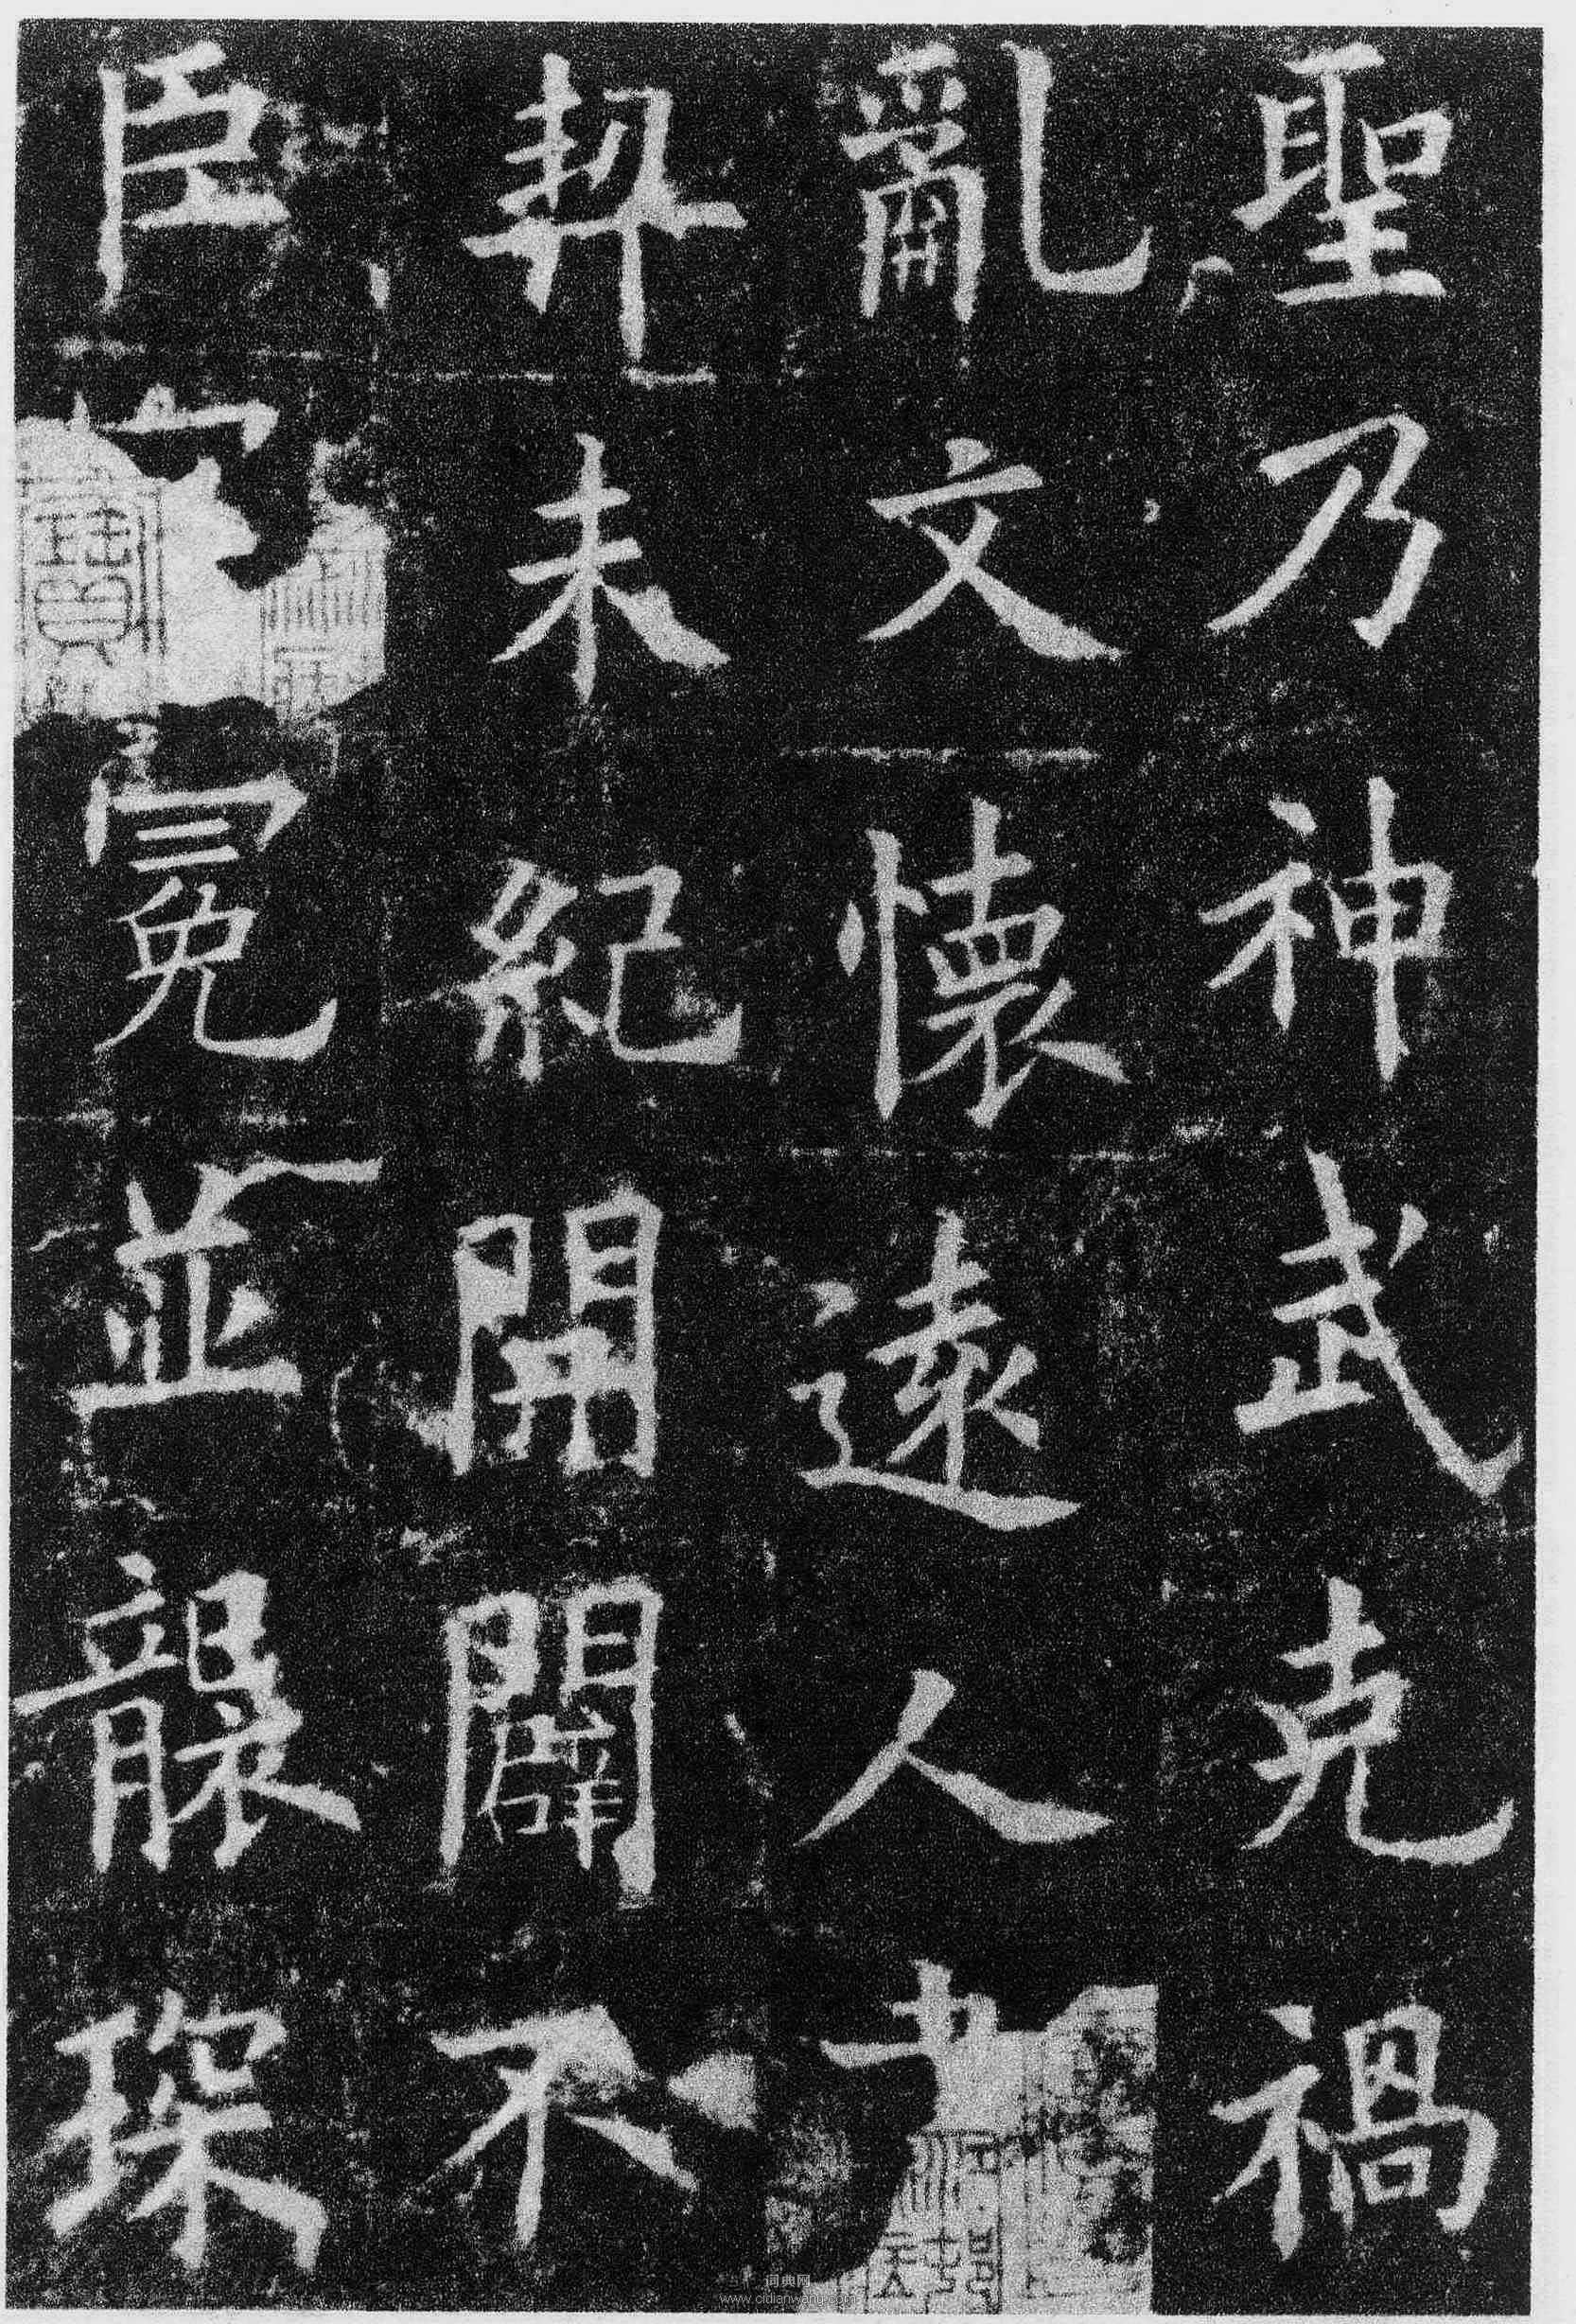 聖乃神武克禍
亂文懷遠人
契未紀開闢不
臣冠冕並襲琛
词典网
www.cidianwang.com